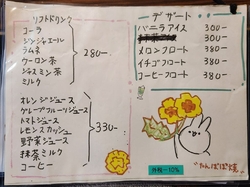 ソフトドリンク
コーラ
ジンジャエール
ラムネ
ウーロン茶
ジャスミン茶
ミルク
280-
オレンジジュース
グレープフルーツジュース
トマトジュース
レモンスカッシュ
野菜ジュース
抹茶ミルク
コーヒー
330-
デザート
バニラアイス 300-
300-
メロンフロート 380-
イチゴフロート 380-
コーヒーフロート 380-
外税-10%